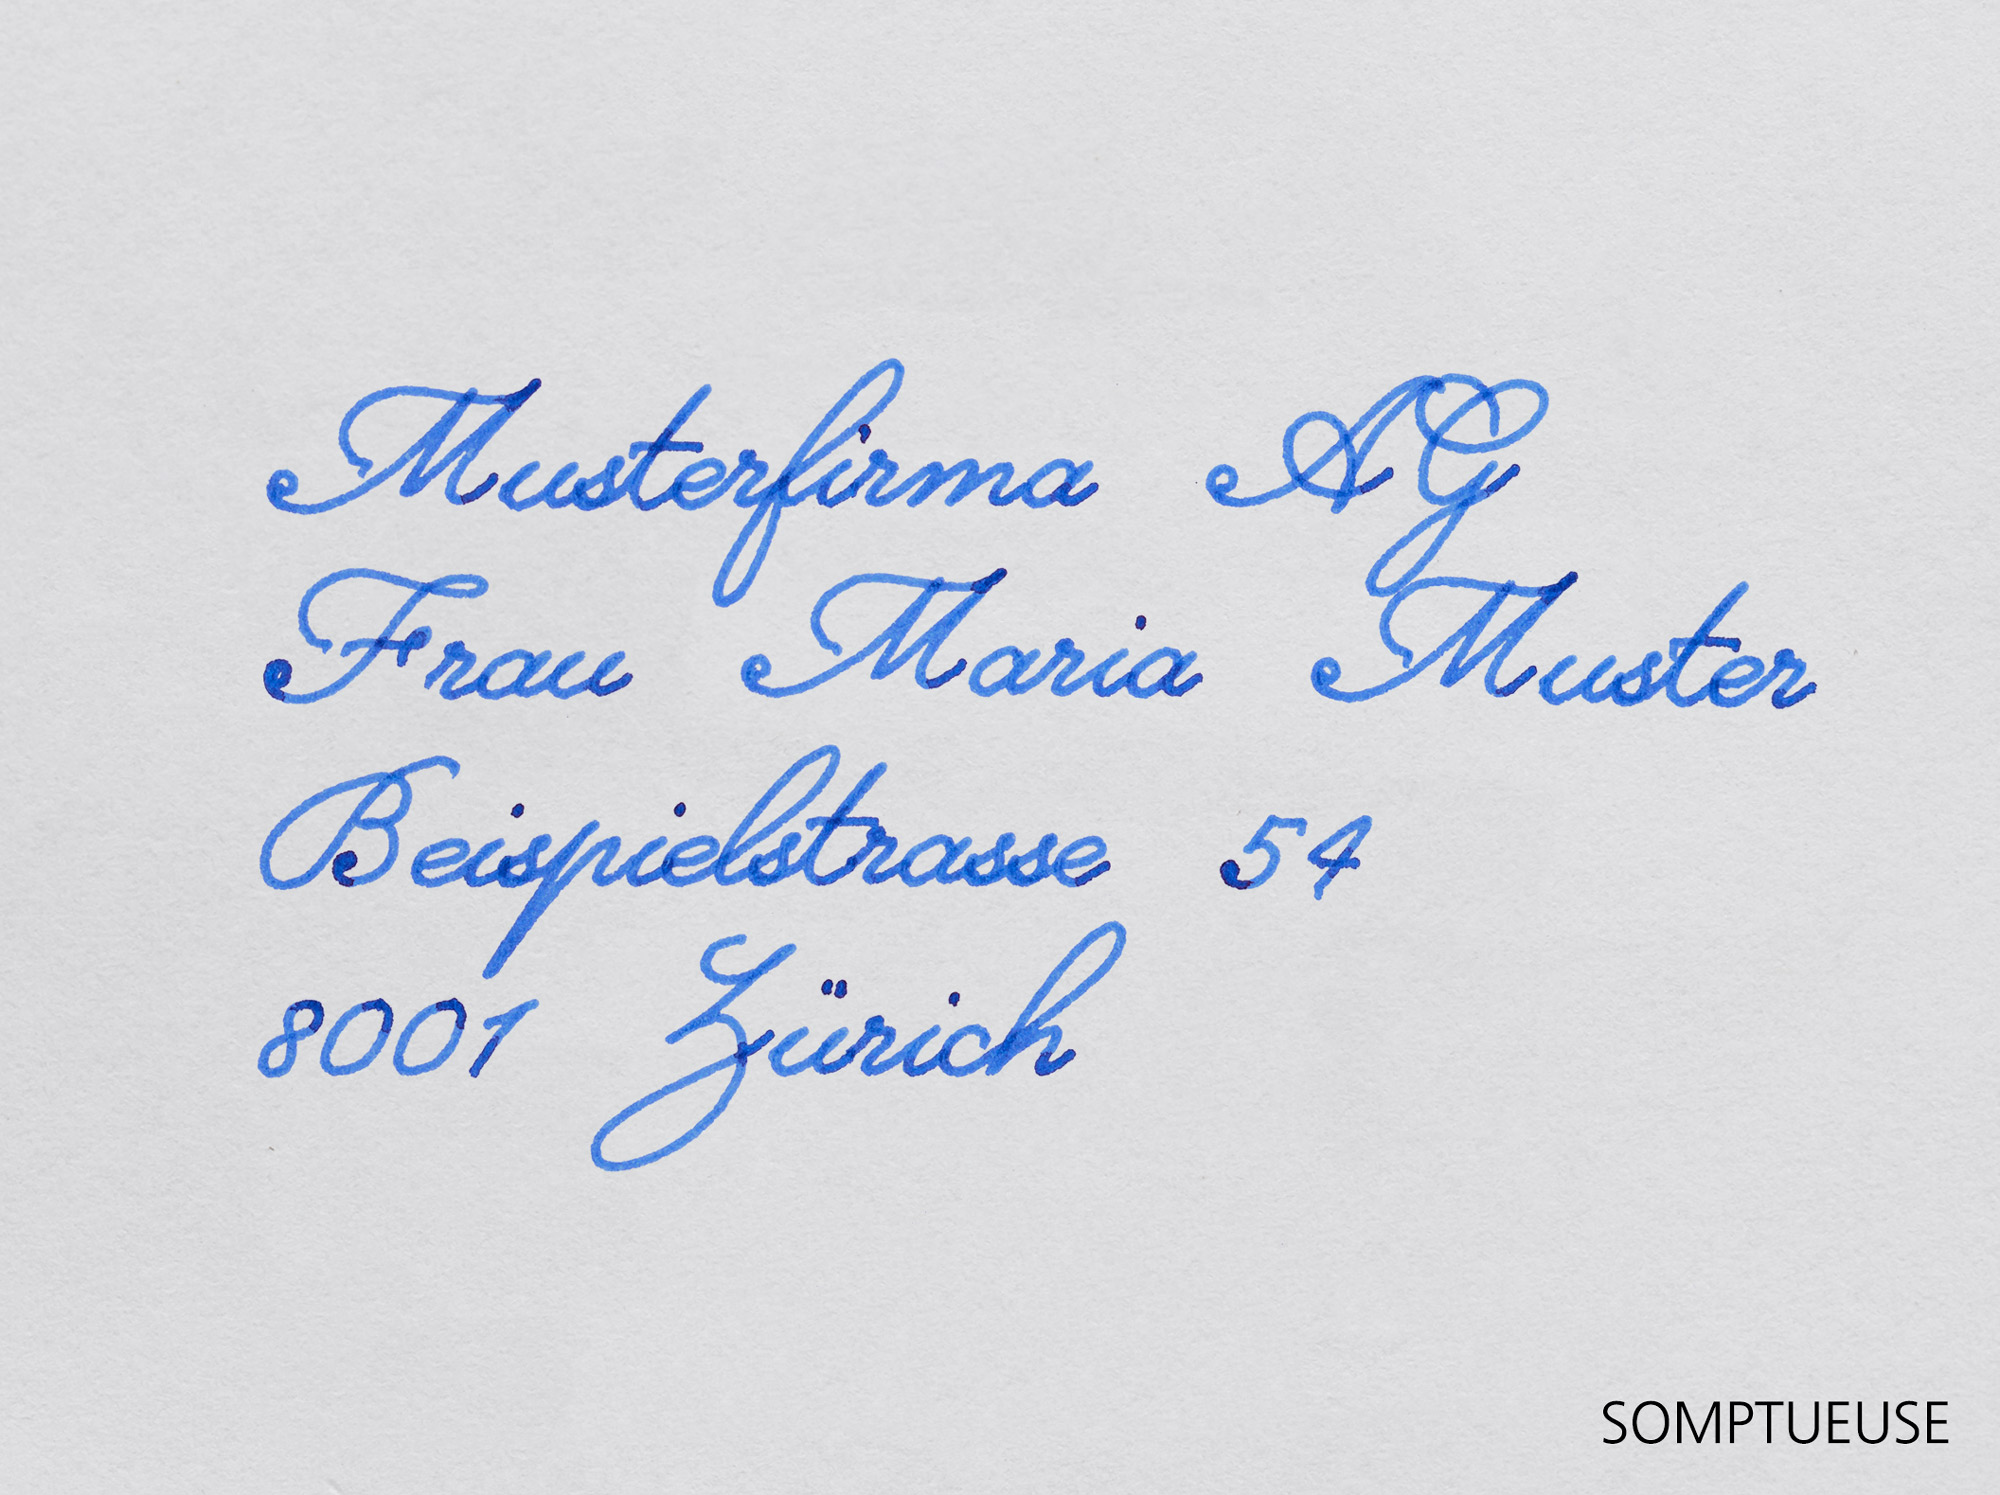 Musterfirma AG
Frau Maria Muster
Beispielstrasse 54
8001 Zürich
SOMPTUEUSE